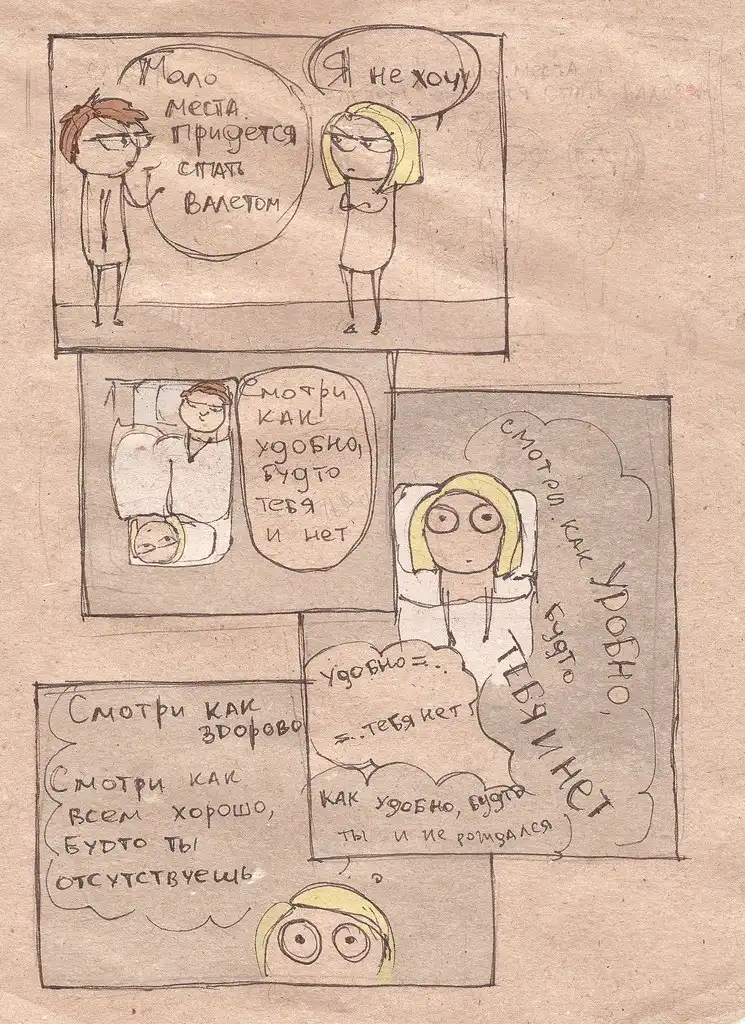 Мало
места.
придется
спать
валетом
Я не хочу
Смотри
как
удобно,
будто
тебя
и нет
смотри как
удобно,
будто
тебя и нет
удобно =..
=..тебя нет!
как удобно, будто
ты и не рождался
Смотри как
здорово
Смотри как
всем хорошо,
будто ты
отсутствуешь